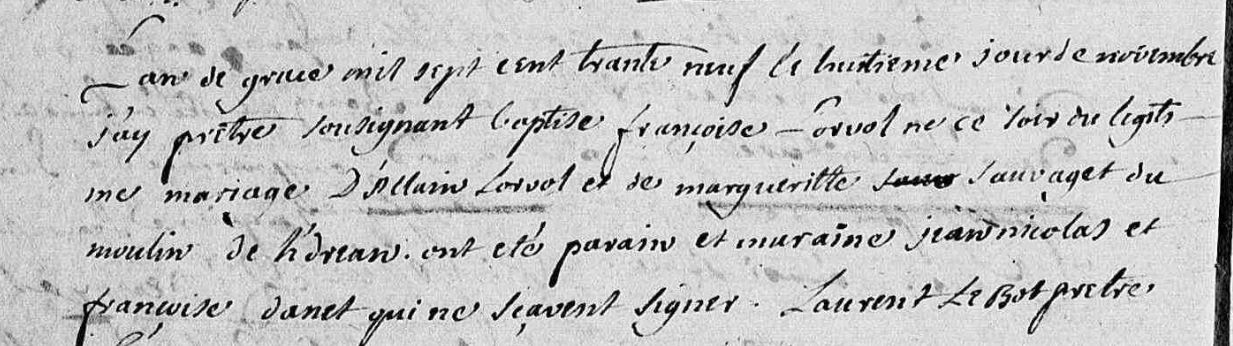 L'an de grace mil sept cent trante neuf le huitieme jour de novembre
j'ay prêtre sousignant baptise françoise Lorvol ne ce soir du legiti-
me mariage D'Allain Lorvol et de margueritte sauvaget du
moulin de h'drean. ont eté parain et maraine jean nicolas et
françoise danet qui ne sçavent signer. Laurent Le Bot pretre